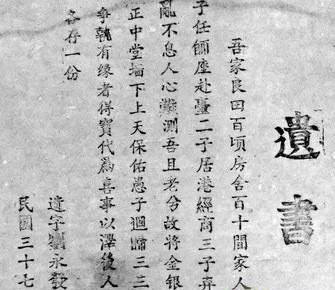 遺書
吾家良田百頃房舍百十間家人
子任師座赴臺二子居港經商三子弃
亂不息人心難測吾且老兮故將金銀
正中堂墙下上天保佑愚子迴歸三三
爭執有缘者得寶代為喜事以澤後人
各存一份
遺字劉永發
民國三十七